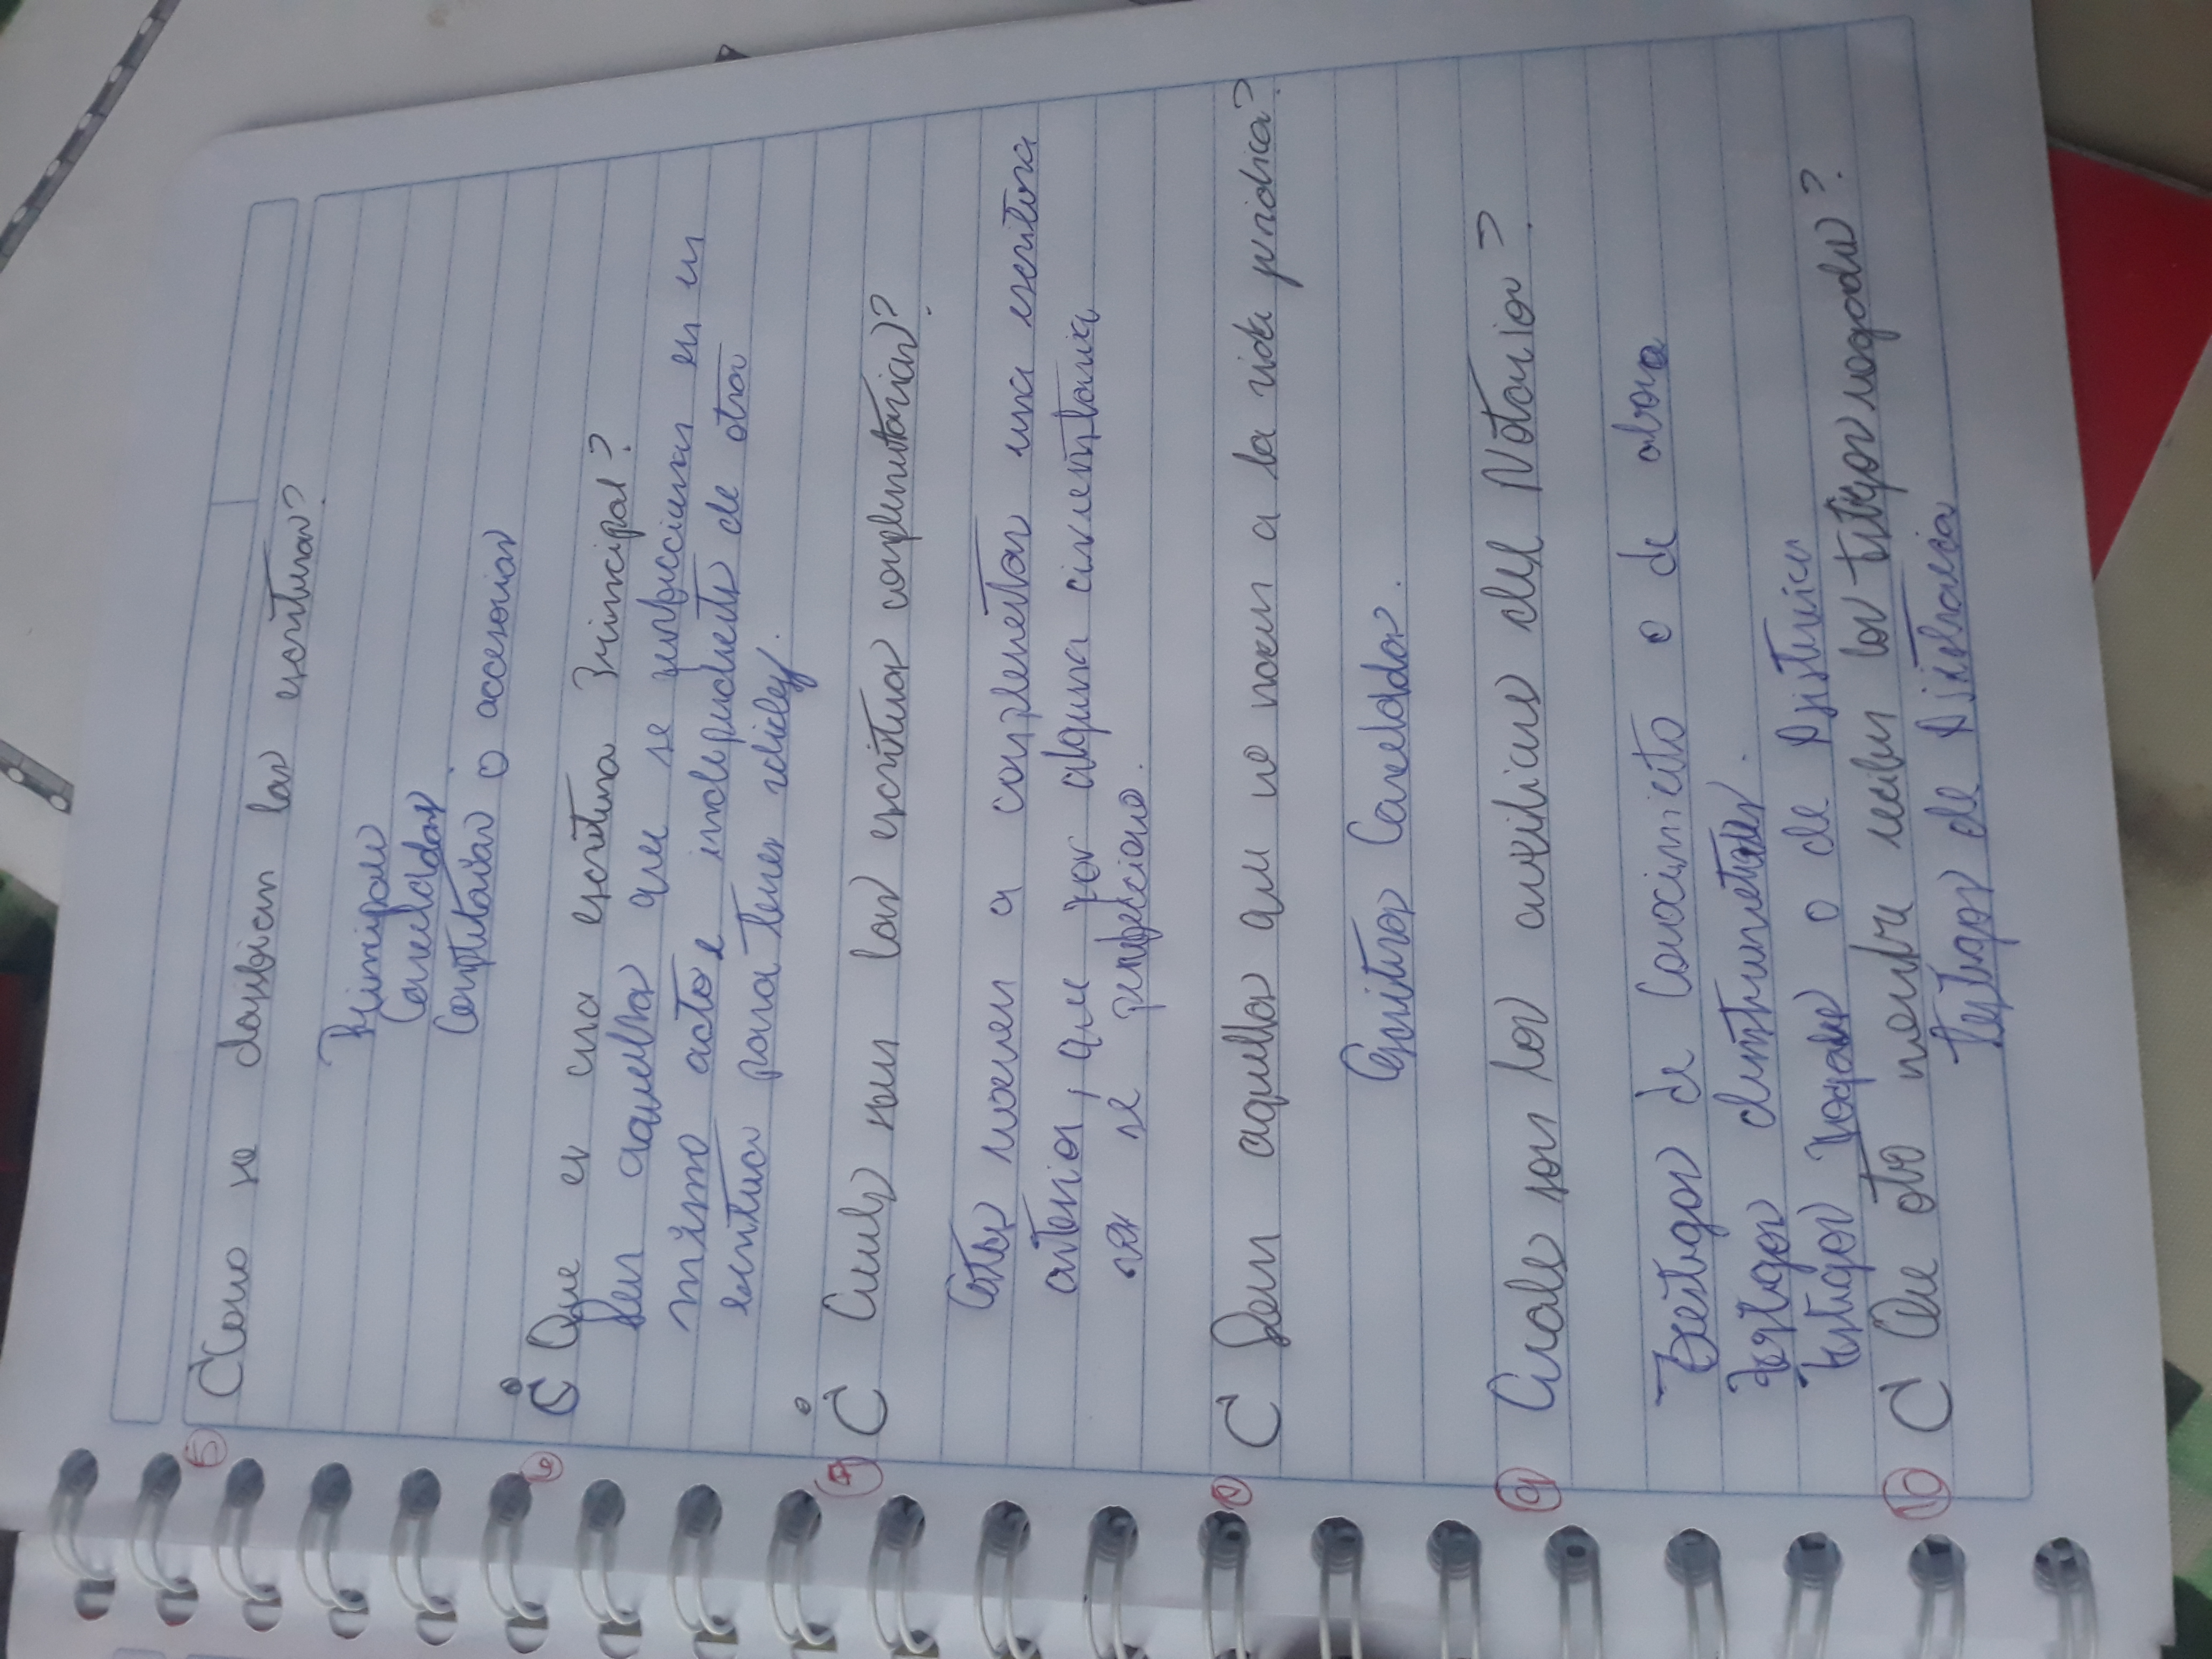 5 ¿Como se clasifican las escrituras?
Principale
Canceladas
Complentarias o accesorias
6 ¿Que es una escritura Principal?
Son aquellas que se perfeccionan en un
mismo acto e independiente de otra
escritura para tener validez.
7 ¿Cuales son las escrituras complementarias?
Estas vienen a complementar una escritura
anterior, que por alguna circunstancia
no se perfecciono.
8 ¿Son aquellas que no nacen a la vida juridica?
Escrituras Canceladas.
9 Cuales son los auxiliares del Notario?
Testigos de Conocimiento o de abono
Testigos instrumentales.
Testigos rogados o de asistencia
10 ¿Que otro nombre reciben los testigos rogados?
Testigos de Asistencia